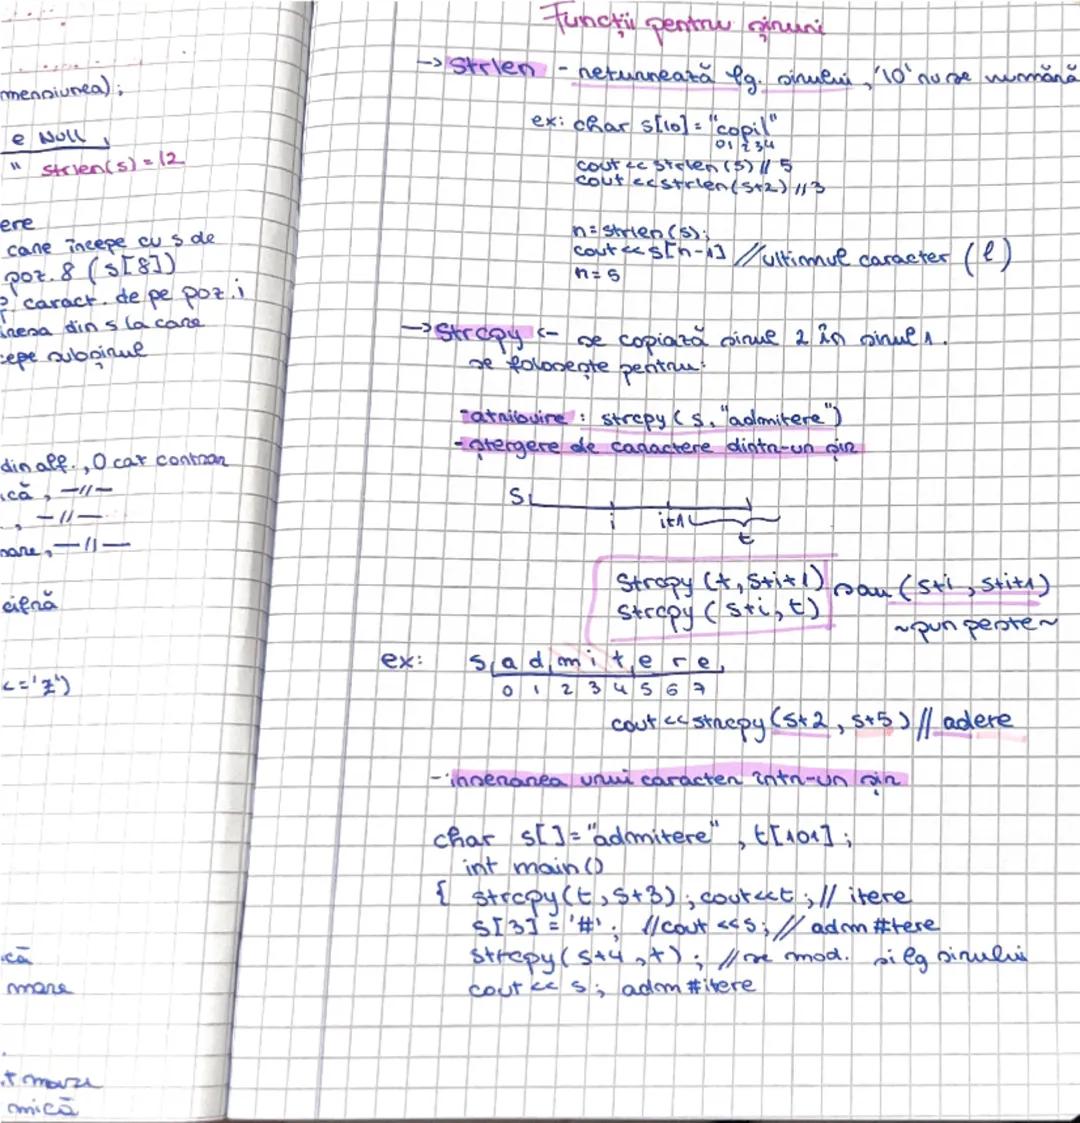 mensiunea);
e Null,
" strlen(s) = 12
ere
care începe cu s de
poz. 8 (s[8])
caract. de pe poz. i
din s la care
cepe subșirul
din alf., 0 car contrar
ică, —//—
, —//—
mare, —//—
cifră
<='z')
că
mare
.
t mare
mică
Funcții pentru șiruri
-> Strlen - returnează lg. șirului, '\0' nu se numără
ex: char s[10] = "copil"
0 1 2 3 4
cout << strlen(s) // 5
cout << strlen(s+2) // 3
n = strlen(s);
cout << s[n-1] // ultimul caracter (l)
n = 5
-> Strcpy <- se copiază șirul 2 în șirul 1.
se folosește pentru:
- atribuire : strcpy(s, "admitere")
- ștergere de caractere dintr-un șir
s
i i+1
t
Strcpy (t, s+i+1) sau (s+i, s+i+1)
Strcpy (s+i, t) ~pun peste~
ex: s, a d m i t e r e,
0 1 2 3 4 5 6 7
cout << strcpy(s+2, s+5) // adere
- inserarea unui caracter într-un șir
char s[] = "admitere", t[101];
int main()
{ strcpy(t, s+3); cout<<t; // itere
s[3] = '#'; // cout << s; // adm #tere
strcpy(s+4, t); // se mod. și lg șirului
cout << s; adm #itere